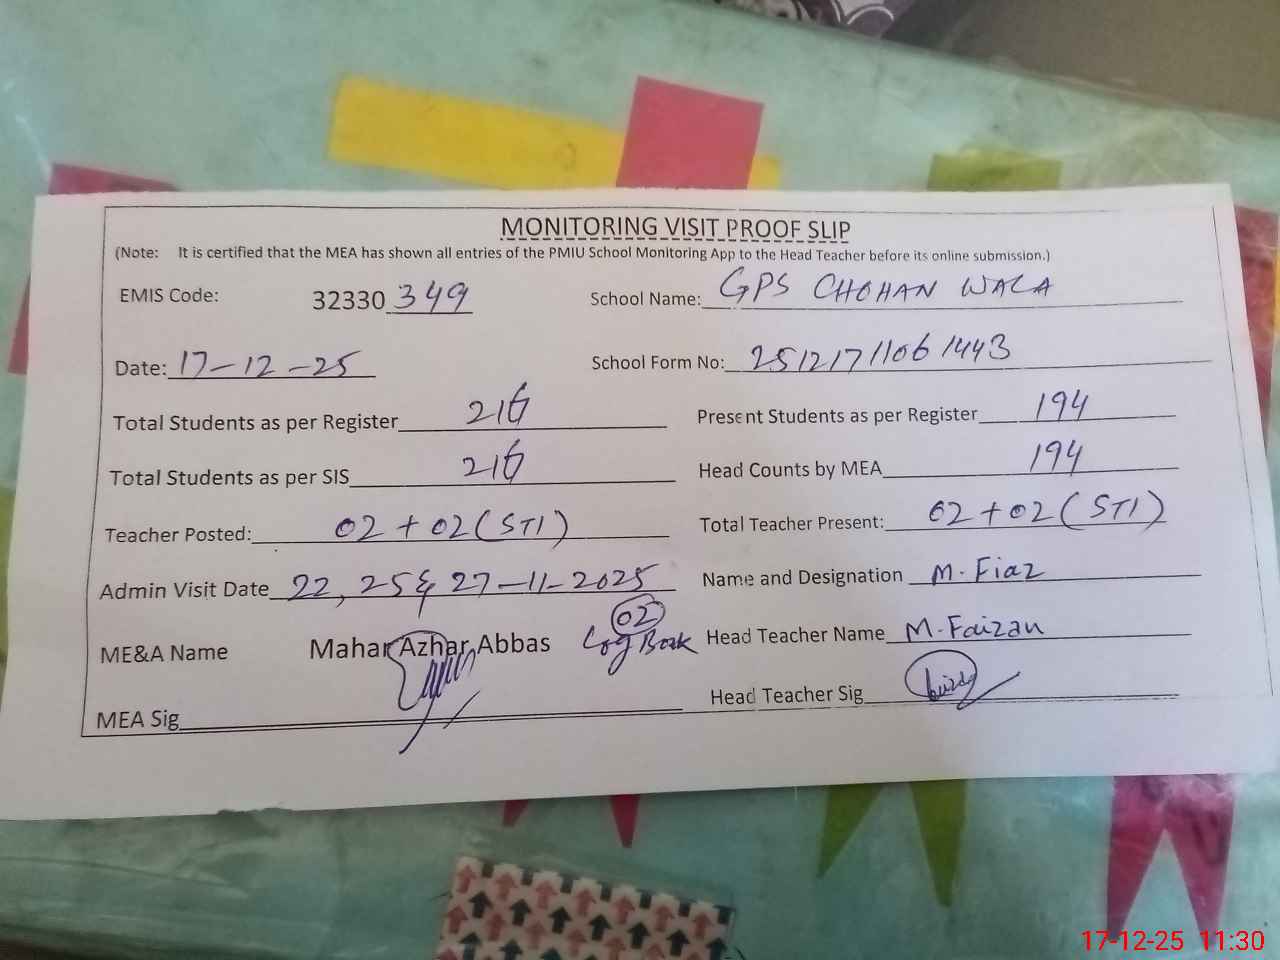 MONITORING VISIT PROOF SLIP
(Note: It is certified that the MEA has shown all entries of the PMIU School Monitoring App to the Head Teacher before its online submission.)
EMIS Code: 32330 349 School Name: GPS CHOHAN WALA
Date: 17-12-25 School Form No: 25121711061443
Total Students as per Register 216 Present Students as per Register 194
Total Students as per SIS 216 Head Counts by MEA 194
Teacher Posted: 02 + 02 (STI) Total Teacher Present: 02 + 02 (STI)
Admin Visit Date 22, 25 & 27-11-2025 Name and Designation M. Fiaz
02
ME&A Name Mahar Azhar Abbas Log Book Head Teacher Name M. Faizan
MEA Sig Head Teacher Sig
17-12-25 11:30